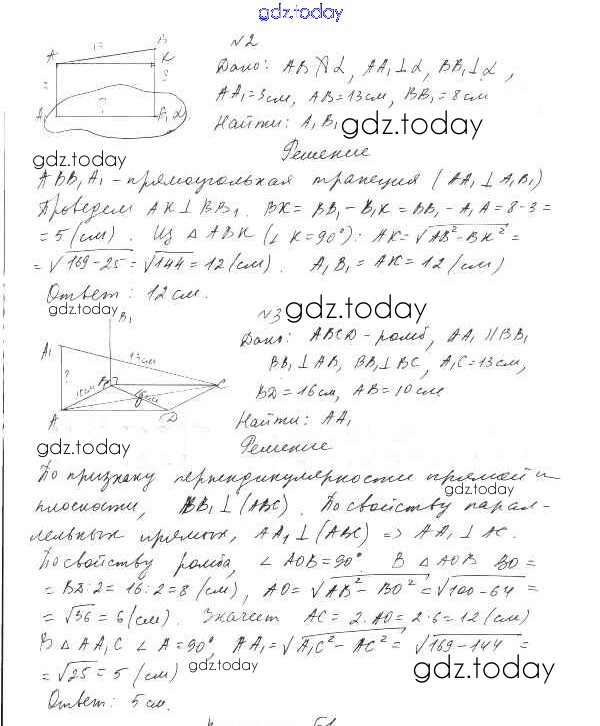 gdz.today
№2
Дано: AB ∦ α, AA₁ ⊥ α, BB₁ ⊥ α,
AA₁ = 3 см, AB = 13 см, BB₁ = 8 см
Найти: A₁B₁ gdz.today
gdz.today
Решение
ABB₁A₁ – прямоугольная трапеция (AA₁ ⊥ A₁B₁)
Проведем AK ⊥ BB₁. BK = BB₁ – B₁K = BB₁ – A₁A = 8 – 3 =
= 5 (см). Из △ABK (∠K = 90°): AK = √AB² – BK² =
= √169 – 25 = √144 = 12 (см). A₁B₁ = AK = 12 (см)
Ответ: 12 см.
gdz.today
№3 gdz.today
Дано: ABCD – ромб, AA₁ ∥ BB₁
BB₁ ⊥ AB, BB₁ ⊥ BC, A₁C = 13 см,
BD = 16 см, AB = 10 см
Найти: AA₁
gdz.today
Решение
По признаку перпендикулярности прямой и
gdz.today
плоскости, BB₁ ⊥ (ABC). По свойству парал-
лельных прямых, AA₁ ⊥ (ABC) => AA₁ ⊥ AC.
По свойству ромба, ∠AOB = 90°. В △AOB BO =
= BD:2 = 16:2 = 8 (см), AO = √AB² – BO² = √100 – 64 =
= √36 = 6 (см). Значит AC = 2·AO = 2·6 = 12 (см)
В △AA₁C ∠A = 90°, AA₁ = √A₁C² – AC² = √169 – 144 =
= √25 = 5 (см) gdz.today gdz.today
Ответ: 5 см.